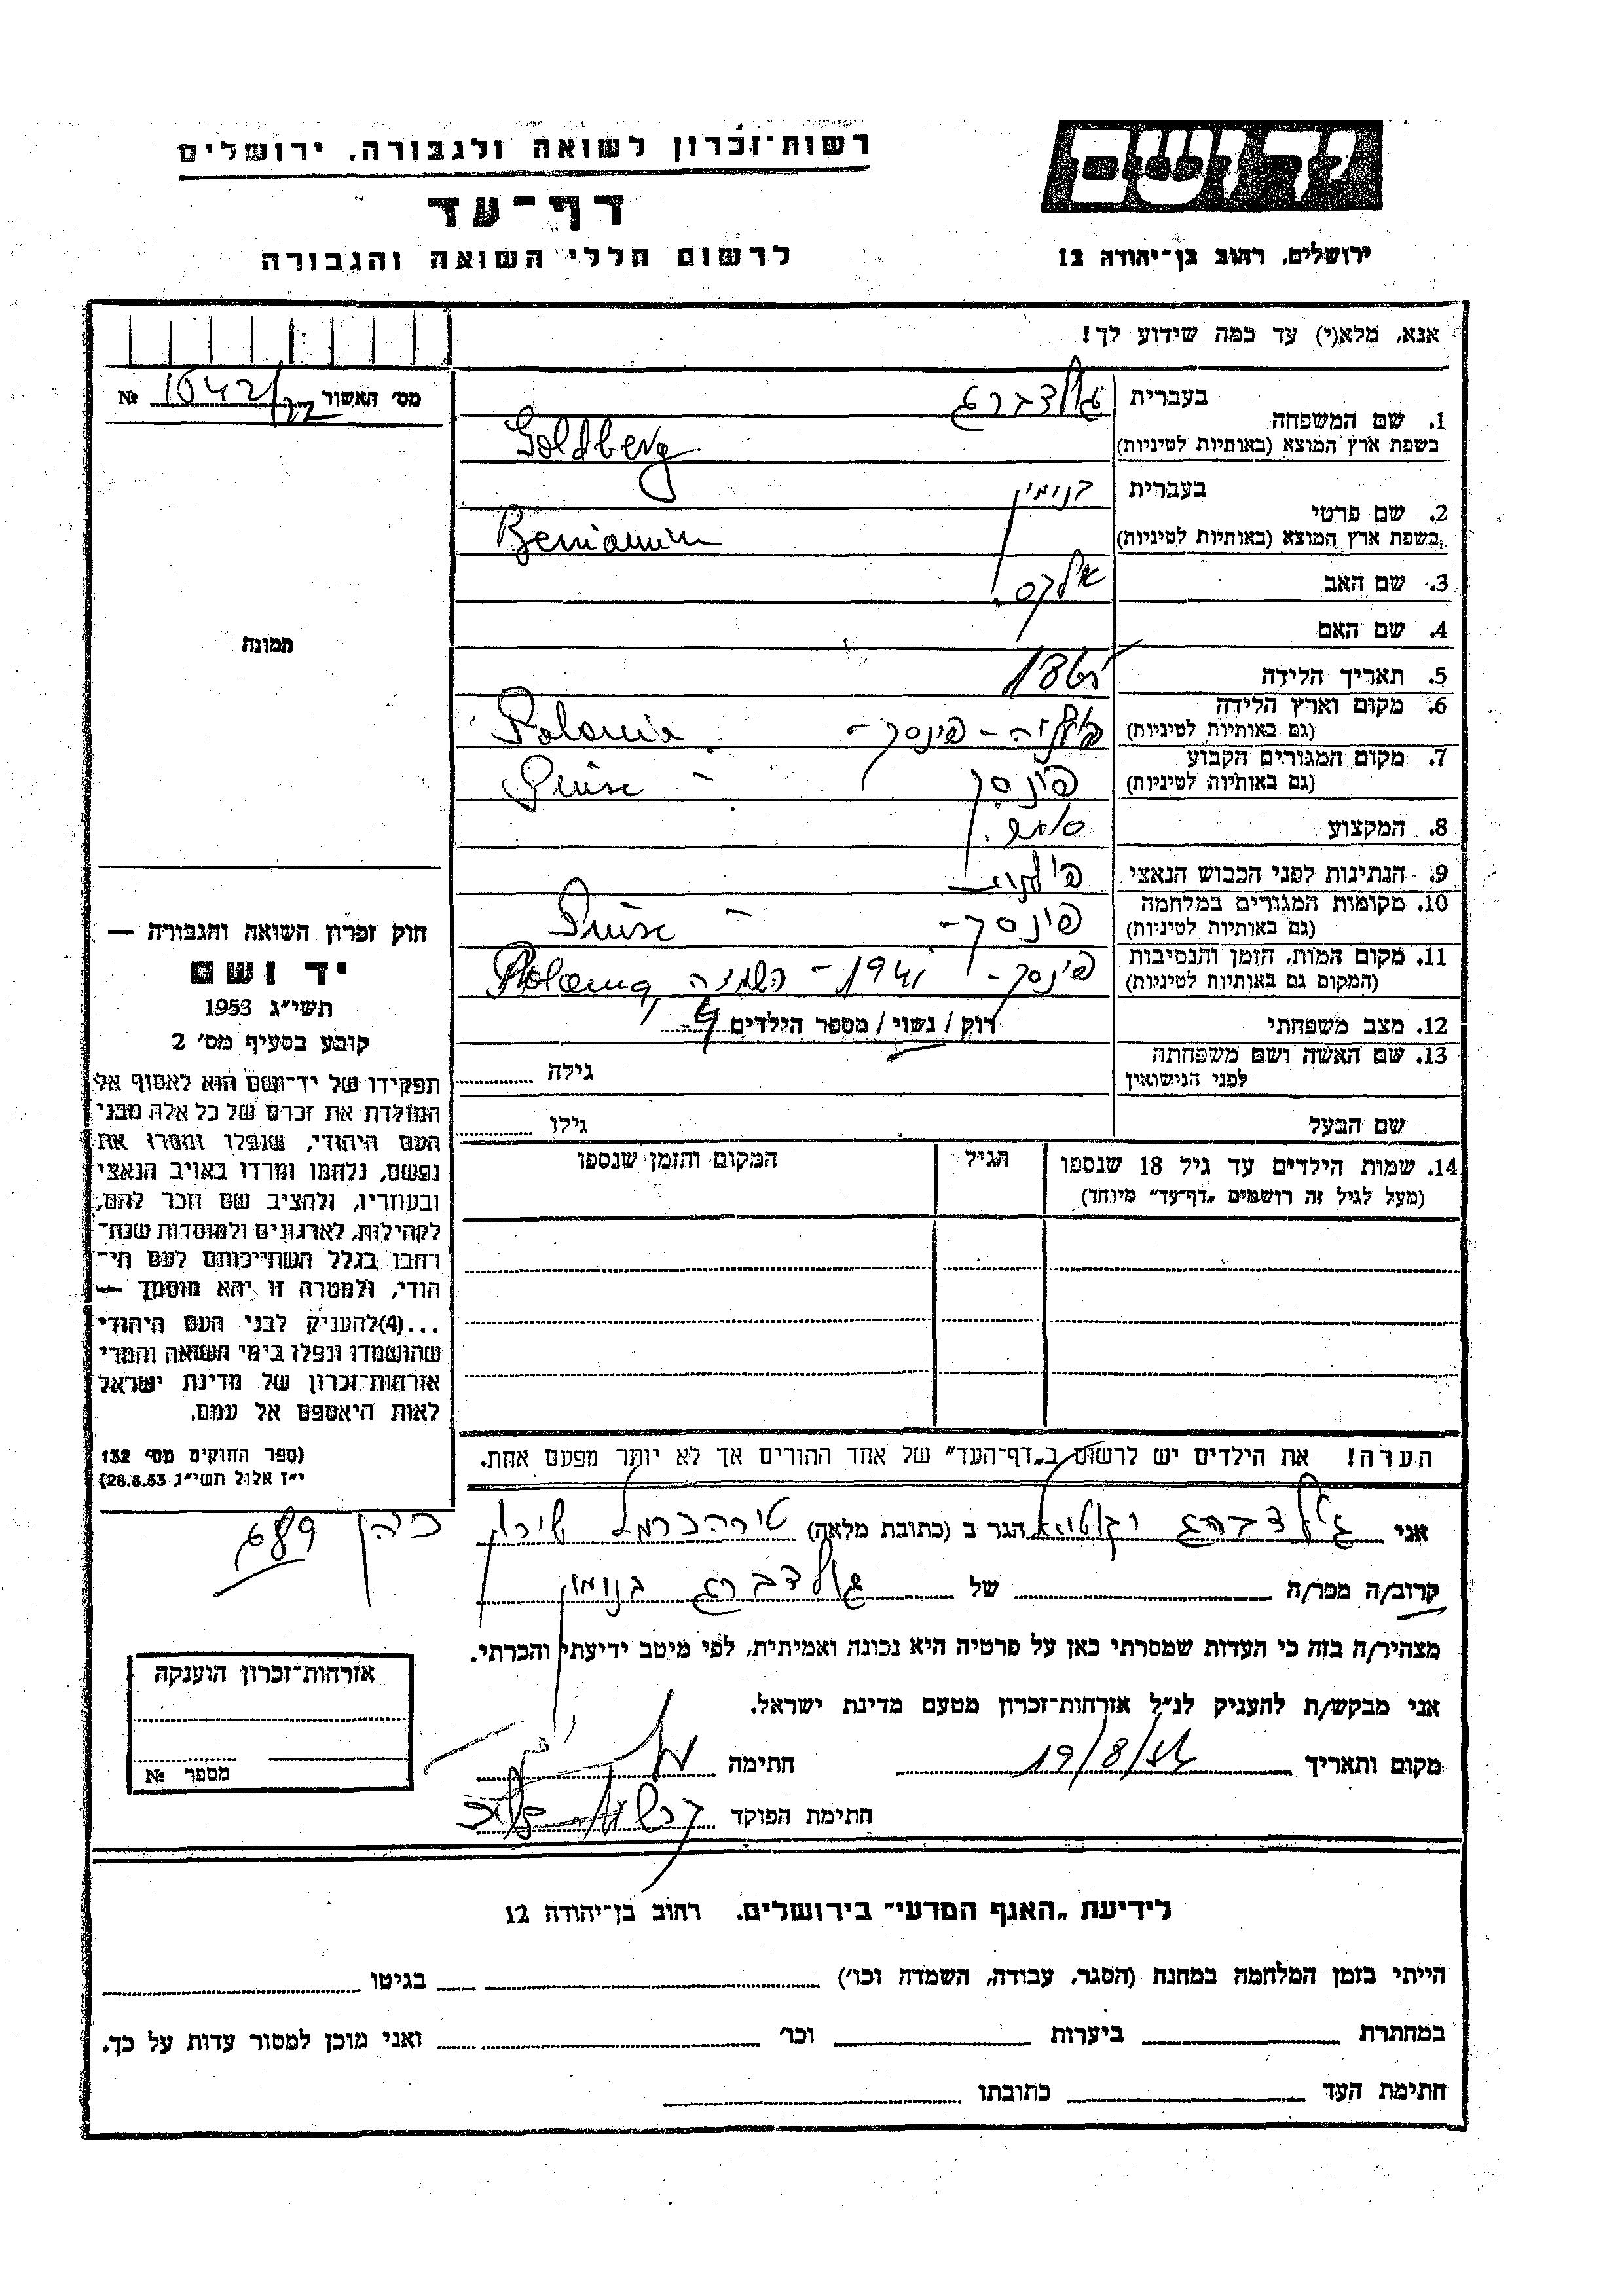 יד ושם
ירושלים, רחוב בן־יהודה 12
רשות־זכרון לשואה ולגבורה, ירושלים
דף־עד
לרשום חללי השואה והגבורה
אנא, מלא(י) עד כמה שידוע לך!
מס׳ האשור № 1642/22
תמונה
1. שם המשפחה
בעברית גולדברג
בשפת ארץ המוצא (באותיות לטיניות) Goldberg
2. שם פרטי
בעברית בנימין
בשפת ארץ המוצא (באותיות לטיניות) Beniamin
3. שם האב
4. שם האם
5. תאריך הלידה
6. מקום וארץ הלידה
(גם באותיות לטיניות) פולניה – פינסק – Polania
7. מקום המגורים הקבוע
(גם באותיות לטיניות) פינסק – Pinsc
8. המקצוע סוחר.
9. הנתינות לפני הכבוש הנאצי פולנית
10. מקומות המגורים במלחמה
(גם באותיות לטיניות) פינסק – – Pinsc
11. מקום המות, הזמן והנסיבות
(המקום גם באותיות לטיניות) פינסק – 1941 – השמדה
12. מצב משפחתי רוק / נשוי / מספר הילדים 4
13. שם האשה ושם משפחתה
לפני הנישואין גילה
שם הבעל גילו
14. שמות הילדים עד גיל 18 שנספו
(מעל לגיל זה רושמים „דף־עד״ מיוחד)
הגיל
המקום והזמן שנספו
הערה! את הילדים יש לרשום ב„דף־העד״ של אחד ההורים אך לא יותר מפעם אחת.
חוק זכרון השואה והגבורה —
יד ושם
תשי״ג 1953
קובע בסעיף מס׳ 2
תפקידו של יד־ושם הוא לאסוף אל
המולדת את זכרם של כל אלה מבני
העם היהודי, שנפלו ומסרו את
נפשם, נלחמו ומרדו באויב הנאצי
ובעוזריו, ולהציב שם וזכר להם,
לקהילות, לארגונים ולמוסדות שנח־
רחבו בגלל השתייכותם לעם הי־
הודי, ולמטרה זו יהא מוסמך —
...(4)להעניק לבני העם היהודי
שהושמדו ונפלו בימי השואה והמרי
אזרחות־זכרון של מדינת ישראל
לאות היאספם אל עמם.
(ספר החוקים מס׳ 132
י״ז אלול תשי״ג 28.8.53)
אני גולדברג הגר ב (כתובת מלאה) טירהכרמל
689
קרוב/ה מכר/ה של גולדברג בנימין
מצהיר/ה בזה כי העדות שמסרתי כאן על פרטיה היא נכונה ואמיתית, לפי מיטב ידיעתי והכרתי.
אני מבקש/ת להעניק לנ״ל אזרחות־זכרון מטעם מדינת ישראל.
מקום ותאריך חתימה
חתימת הפוקד
אזרחות־זכרון הוענקה
מספר №
לידיעת „האגף המדעי״ בירושלים, רחוב בן־יהודה 12
הייתי בזמן המלחמה במחנה (הסגר, עבודה, השמדה וכו׳) בגיטו
במחתרת ביערות וכו׳ ואני מוכן למסור עדות על כך.
חתימת העד כתובתו